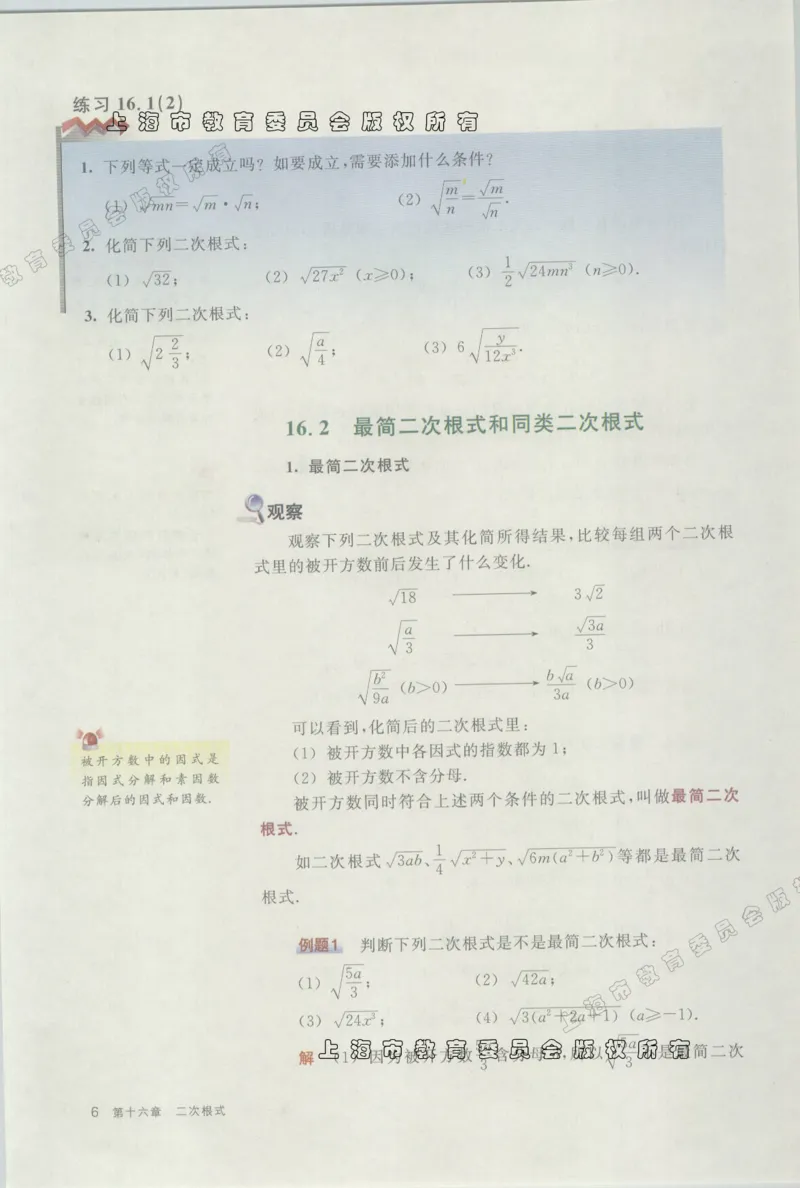 练习 16.1(2)
上海市教育委员会版权所有
1. 下列等式一定成立吗? 如要成立,需要添加什么条件?
(1) √mn=√m·√n; (2) √(m/n)=√m/√n.
教育委员会版权所有
2. 化简下列二次根式:
(1) √32; (2) √27x² (x≥0); (3) 1/2 √24mn³ (n≥0).
3. 化简下列二次根式:
(1) √(2 2/3); (2) √(a/4); (3) 6√(y/12x³).
16.2 最简二次根式和同类二次根式
1. 最简二次根式
观察
观察下列二次根式及其化简所得结果,比较每组两个二次根
式里的被开方数前后发生了什么变化.
√18 → 3√2
√(a/3) → √3a/3
√(b²/9a) (b>0) → b√a/3a (b>0)
可以看到,化简后的二次根式里:
(1) 被开方数中各因式的指数都为 1;
(2) 被开方数不含分母.
被开方数中的因式是
指因式分解和素因数
分解后的因式和因数.
被开方数同时符合上述两个条件的二次根式,叫做最简二次
根式.
如二次根式 √3ab、1/4 √(x²+y)、√(6m(a²+b²)) 等都是最简二次
根式.
例题1 判断下列二次根式是不是最简二次根式:
(1) √(5a/3); (2) √42a;
(3) √24x³; (4) √(3(a²+2a+1)) (a≥-1).
上海市教育委员会版权所有
解 (1) 因为被开方数 含分母 ,所以 是最简二次
6 第十六章 二次根式